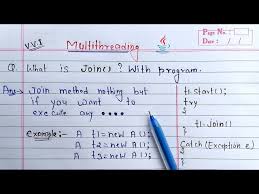 Page No.:
Date: / /
V.V.I Multithreading
Q. What is Join()? With program.
Ans- Join method nothing but
if you want to
execute any ••••
Example:- A t1=new A();
A t2=new A();
A t3=new A();
t1.start();
try
{
t1.join()
}
Catch(Exception e)
{